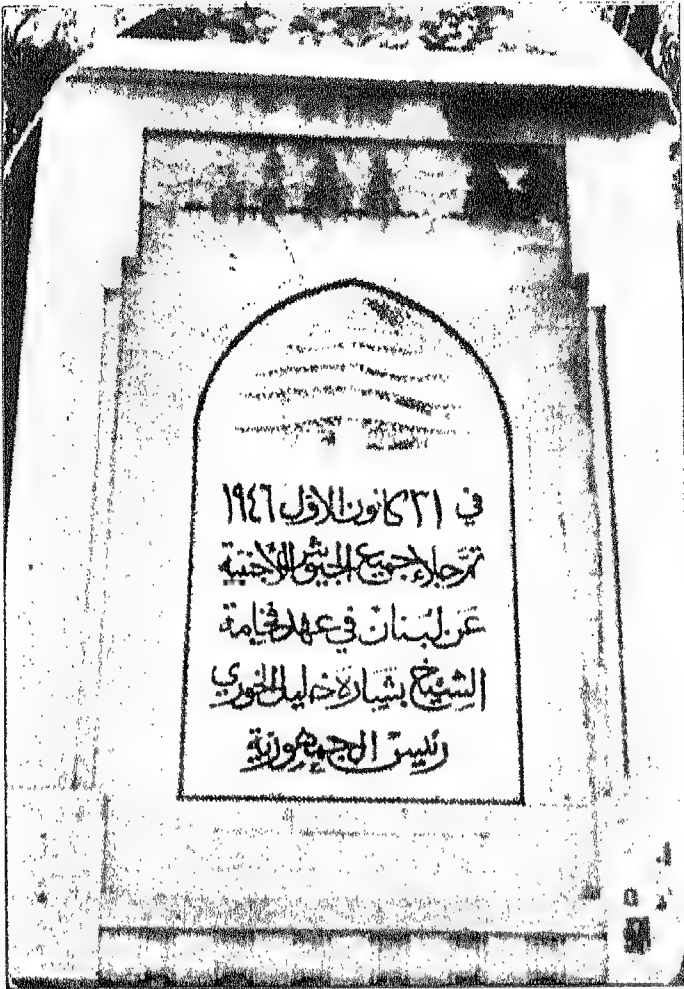 في ٣١ كانون الاول ١٩٤٦
تمَّ جلاء جميع الجيوش الأجنبية
عَن لبنان في عهد فخامة
الشيخ بشاره خليل الخوري
رئيس الجمهورية